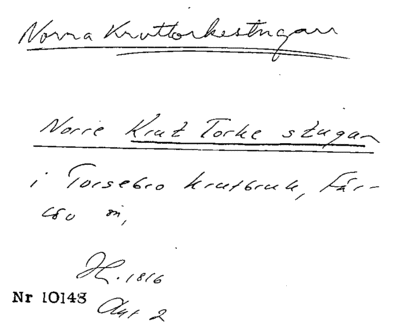 Norra Kruttorkestugan
Norre Krut Torke stugan
i Torsebro krutbruk, Fär-
löv sn,
H. 1816
Nr 10148
Avt 2